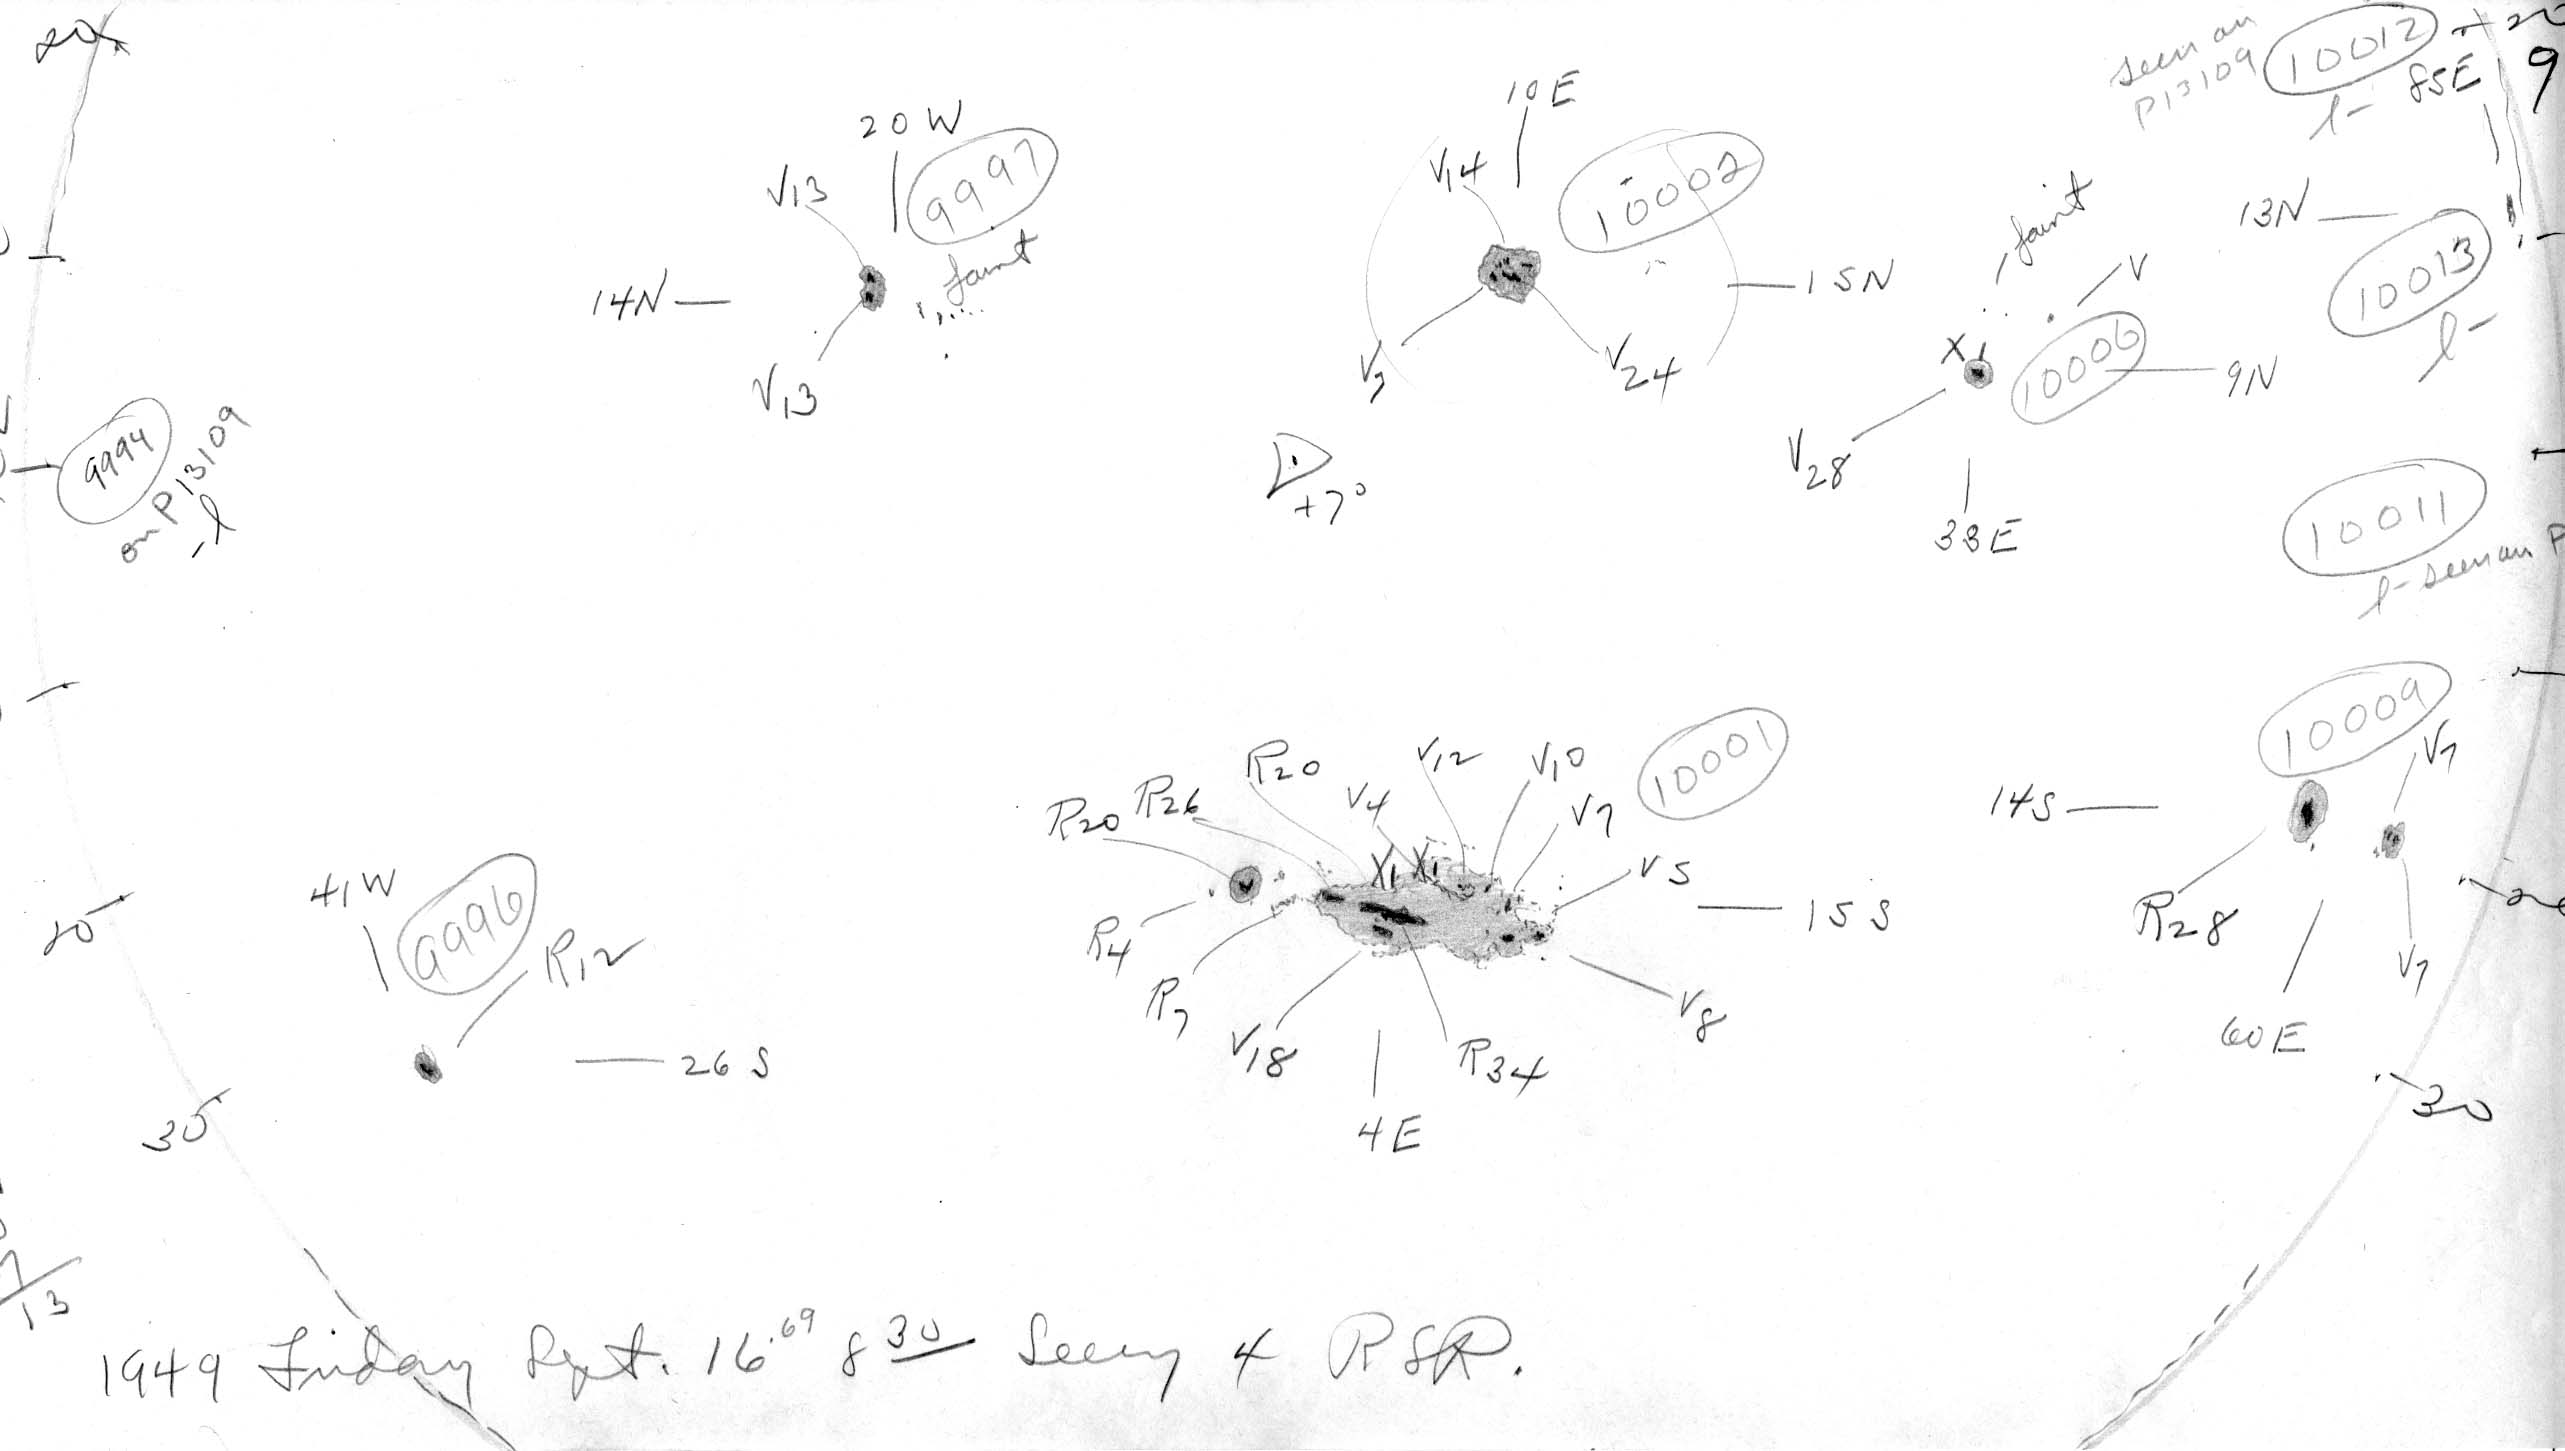 20
seen on
P13109
10012
+20
l-
85E
9
20W
V13
9997
faint
14N
V13
10E
V14
10002
15N
V7
V24
+7°
faint
V
X1
10006
9N
V28
33E
13N
10013
l-
9994
on P13109
-l
10011
l- seen on P
10009
V7
14S
R28
V7
60E
10001
R20
R26
R20
V4
V12
V10
V7
V5
X1
X1
15S
R4
R7
V18
R34
V8
4E
41W
9996
R12
26S
20
30
30
13
1949 Friday Sept. 16.69 8 30 Seeing 4 RSR.